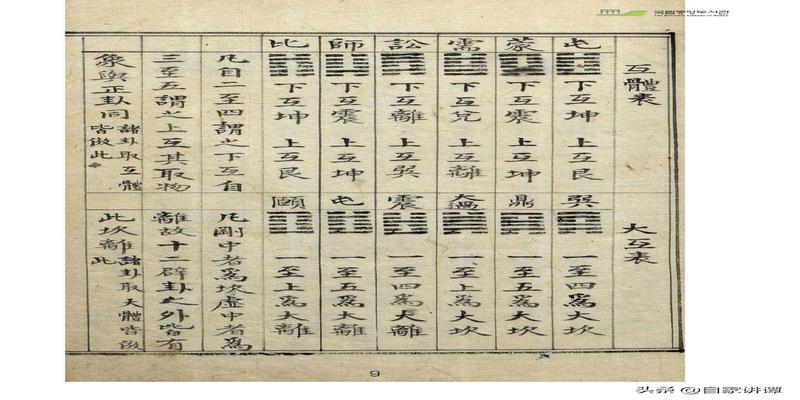 國立中央도서관
THE NATIONAL LIBRARY OF KOREA
互體表
屯 下互坤 上互艮
蒙 下互震 上互坤
需 下互兌 上互離
訟 下互離 上互巽
師 下互震 上互坤
比 下互坤 上互艮
凡自二至四謂之下互自
三至五謂之上互其取物
象與正卦同諸卦取互體
皆倣此
大互表
巽 一至四爲大坎
鼎 一至五爲大坎
大過 一至上爲大坎
震 一至四爲大離
屯 一至五爲大離
頤 一至上爲大離
凡剛中者爲坎虛中者爲
離故十二辟卦之外皆有
此坎離諸卦取大體皆倣
此
9
头条 @自家讲谭